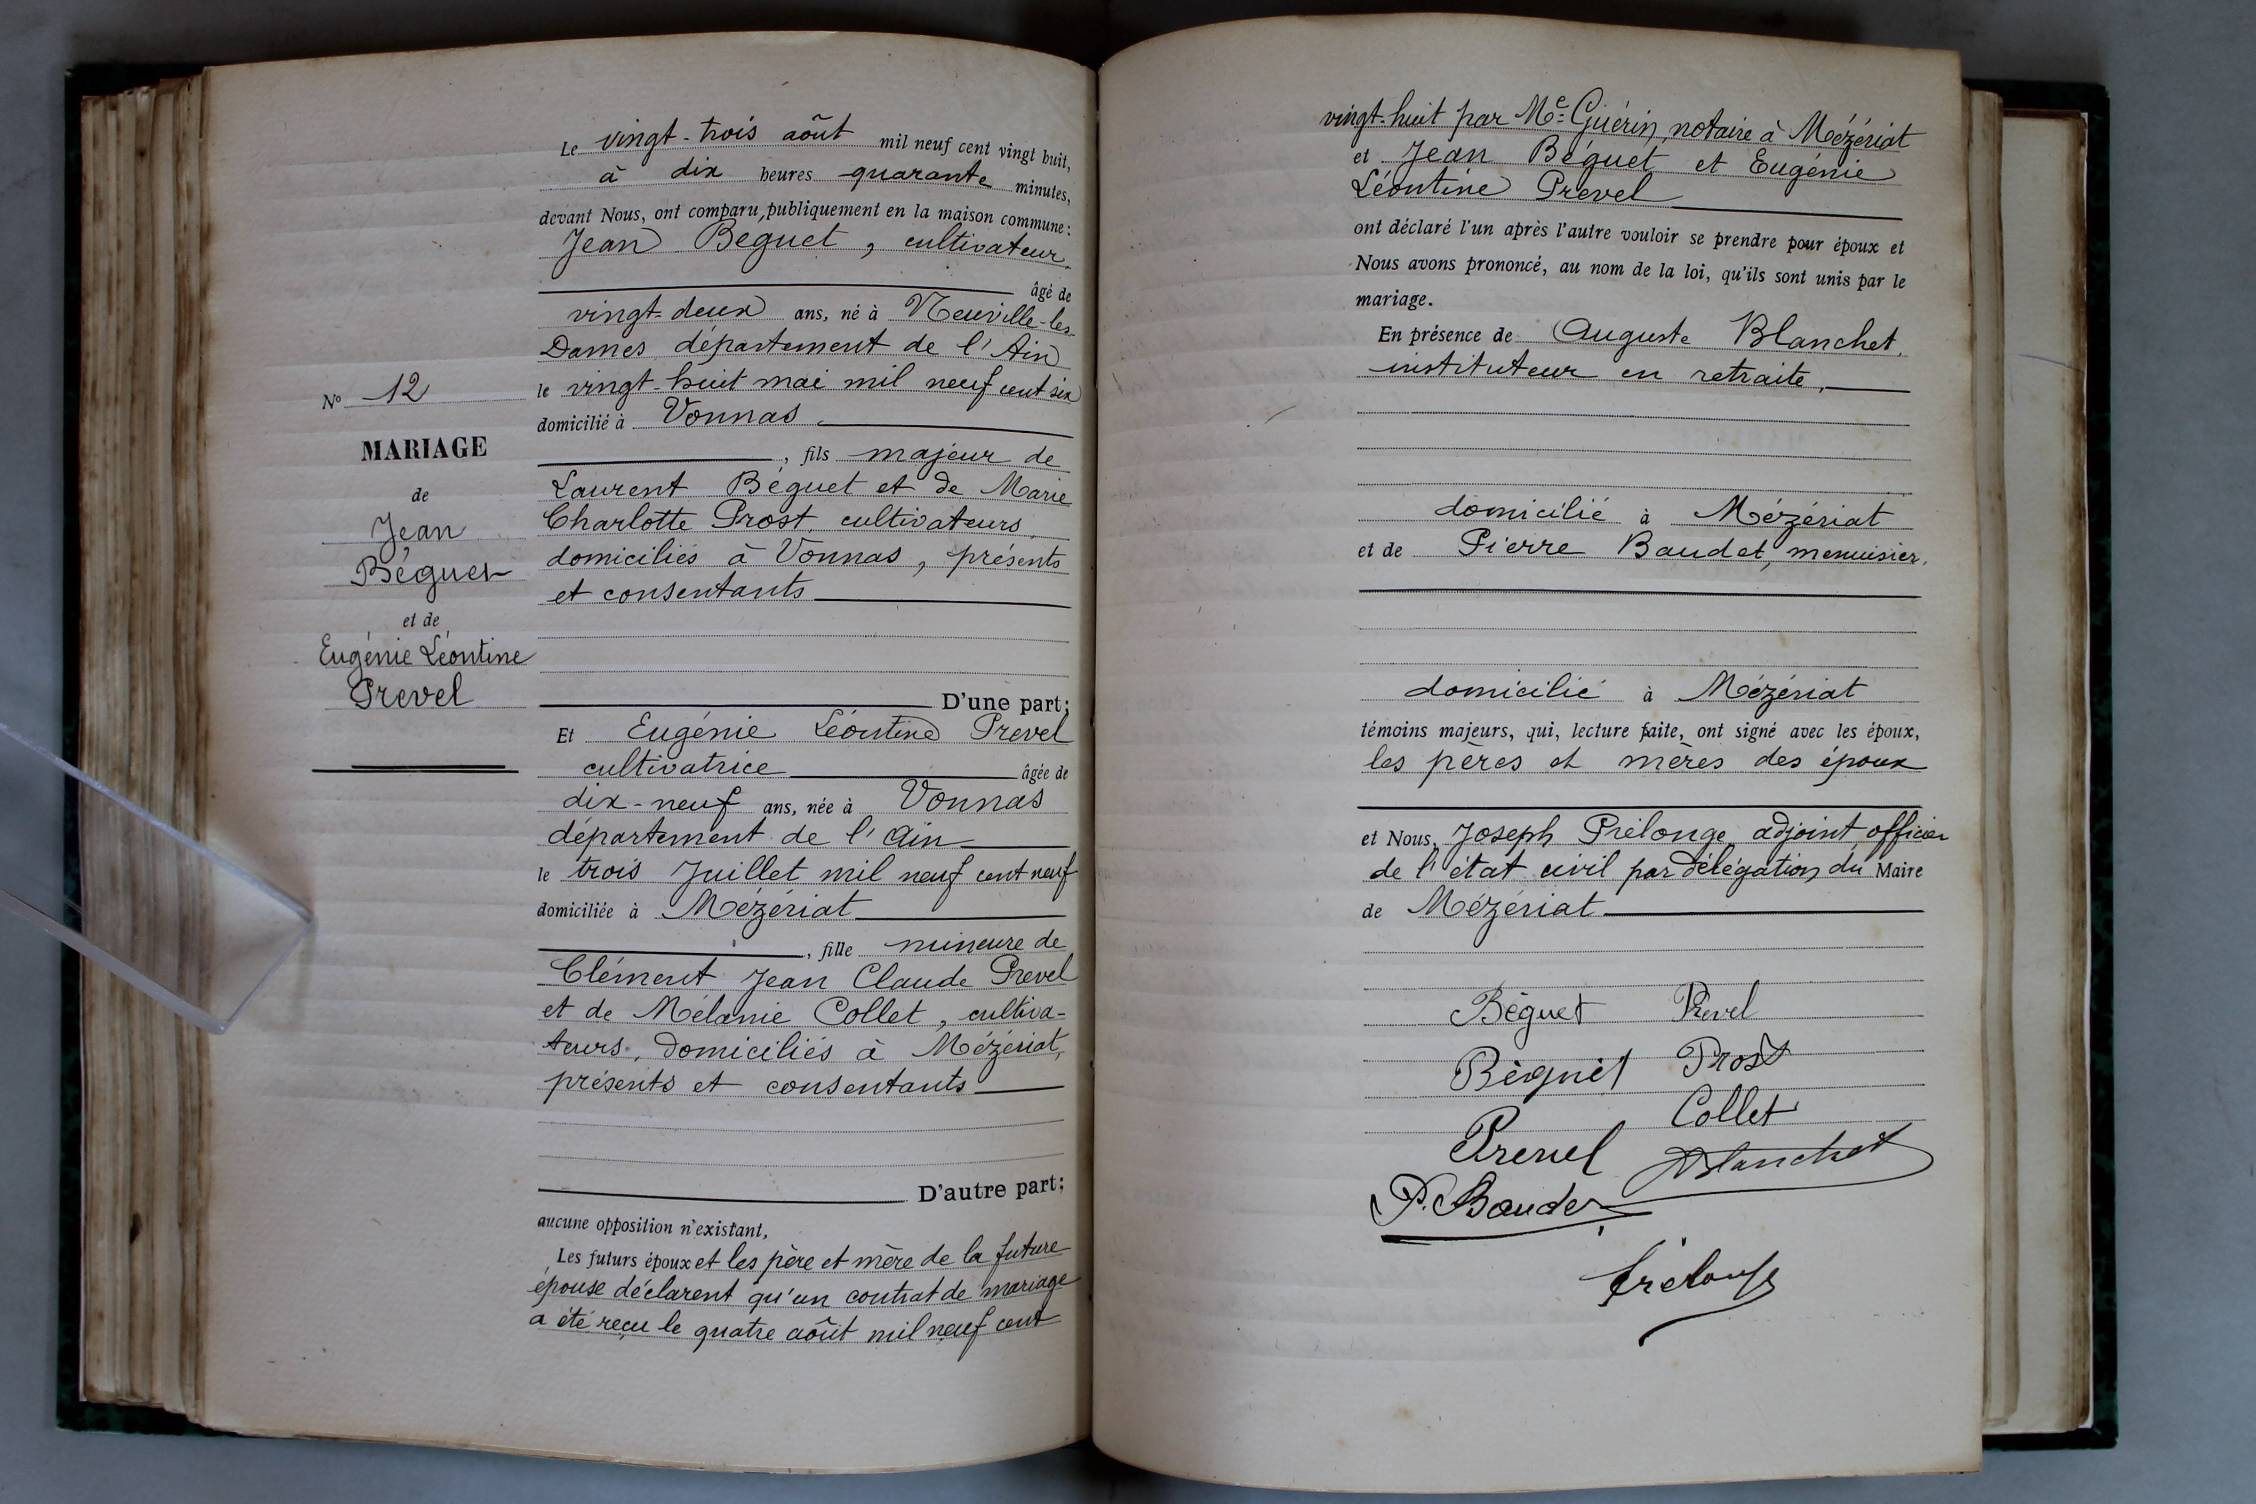 N° 12
MARIAGE
de
Jean
Béguet
et de
Eugénie Léontine
Prevel
Le vingt-trois août mil neuf cent vingt huit,
à dix heures quarante minutes,
devant Nous, ont comparu publiquement en la maison commune :
Jean Béguet, cultivateur,
âgé de
vingt-deux ans, né à Neuville-les-
Dames département de l'Ain
le vingt-huit mai mil neuf cent six
domicilié à Vonnas
, fils majeur de
Laurent Béguet et de Marie
Charlotte Prost, cultivateurs,
domiciliés à Vonnas, présents
et consentants
D'une part;
Et Eugénie Léontine Prevel
cultivatrice âgée de
dix-neuf ans, née à Vonnas
département de l'Ain
le trois Juillet mil neuf cent neuf
domiciliée à Mézériat
, fille mineure de
Clément Jean Claude Prevel
et de Mélanie Collet, cultiva-
teurs, domiciliés à Mézériat,
présents et consentants
D'autre part;
aucune opposition n'existant,
Les futurs époux et les père et mère de la future
épouse déclarent qu'un contrat de mariage
a été reçu le quatre août mil neuf cent
vingt-huit par Me Guérin, notaire à Mézériat
et Jean Béguet et Eugénie
Léontine Prevel
ont déclaré l'un après l'autre vouloir se prendre pour époux et
Nous avons prononcé, au nom de la loi, qu'ils sont unis par le
mariage.
En présence de Auguste Blanchet,
instituteur en retraite,
domicilié à Mézériat
et de Pierre Baudet, menuisier,
domicilié à Mézériat
témoins majeurs, qui, lecture faite, ont signé avec les époux,
les pères et mères des époux
et Nous, Joseph Prélonge adjoint officier
de l'état civil par délégation du Maire
de Mézériat
Béguet Prevel
Béguet Prost
Collet
Prevel Blanchet
P. Baudet
Prélonge